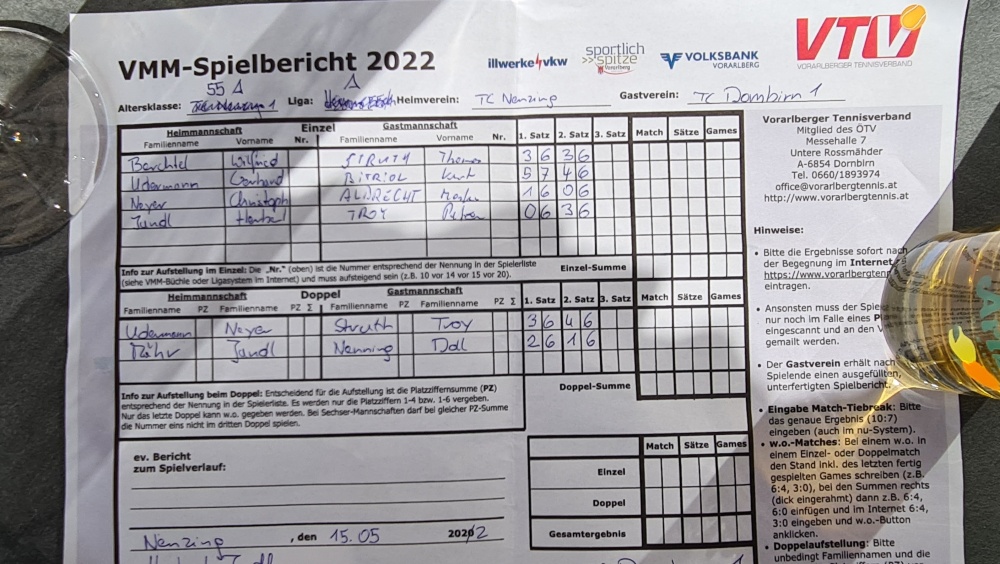 VMM-Spielbericht 2022
illwerke vkw
sportlich spitze Vorarlberg
VOLKSBANK VORARLBERG
VTV
VORARLBERGER TENNISVERBAND
55 A A
Altersklasse: Liga: Heimverein: TC Nenzing Gastverein: TC Dornbirn 1
Heimmannschaft Einzel Gastmannschaft
Familienname Vorname Nr. Familienname Vorname Nr. 1. Satz 2. Satz 3. Satz Match Sätze Games
Wilfried STRUTH 3 6 3 6
Udermann 5 7 4 6
Neyer Christoph ALBRECHT 1 6 0 6
Jandl TROY 0 6 3 6
Info zur Aufstellung im Einzel: Die „Nr." (oben) ist die Nummer entsprechend der Nennung in der Spielerliste
(siehe VMM-Büchle oder Ligasystem im Internet) und muss aufsteigend sein (z.B. 10 vor 14 vor 15 vor 20).
Einzel-Summe
Heimmannschaft Doppel Gastmannschaft
Familienname PZ Familienname PZ Σ Familienname PZ Familienname PZ Σ 1. Satz 2. Satz 3. Satz Match Sätze Games
Udermann Neyer Struth Troy 3 6 4 6
Jandl Nenning 2 6 1 6
Info zur Aufstellung beim Doppel: Entscheidend für die Aufstellung ist die Platzziffernsumme (PZ)
entsprechend der Nennung in der Spielerliste. Es werden nur die Platzziffern 1-4 bzw. 1-6 vergeben.
Nur das letzte Doppel kann w.o. gegeben werden. Bei Sechser-Mannschaften darf bei gleicher PZ-Summe
die Nummer eins nicht im dritten Doppel spielen.
Doppel-Summe
ev. Bericht
zum Spielverlauf:
Match Sätze Games
Einzel
Doppel
Gesamtergebnis
Nenzing , den 15.05 2022
Vorarlberger Tennisverband
Mitglied des ÖTV
Messehalle 7
Untere Rossmähder
A-6854 Dornbirn
Tel. 0660/1893974
office@vorarlbergtennis.at
http://www.vorarlbergtennis.at
Hinweise:
• Bitte die Ergebnisse sofort nach
der Begegnung im Internet
https://www.vorarlbergten
eintragen.
• Ansonsten muss der Spie
nur noch im Falle eines P
eingescannt und an den V
gemailt werden.
• Der Gastverein erhält nach
Spielende einen ausgefüllten,
unterfertigten Spielbericht.
• Eingabe Match-Tiebreak: Bitte
das genaue Ergebnis (10:7)
eingeben (auch im nu-System).
• w.o.-Matches: Bei einem w.o. in
einem Einzel- oder Doppelmatch
den Stand inkl. des letzten fertig
gespielten Games schreiben (z.B.
6:4, 3:0), bei den Summen rechts
(dick eingerahmt) dann z.B. 6:4,
6:0 einfügen und im Internet 6:4,
3:0 eingeben und w.o.-Button
anklicken.
• Doppelaufstellung: Bitte
unbedingt Familiennamen und die